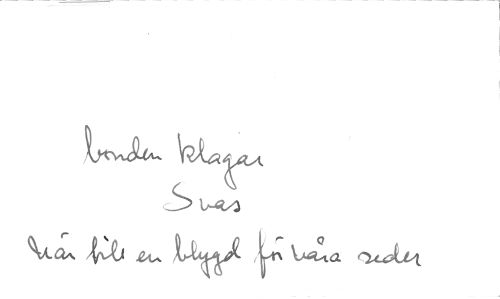 bonden klagar
Svas
när blir en blygd för våra seder